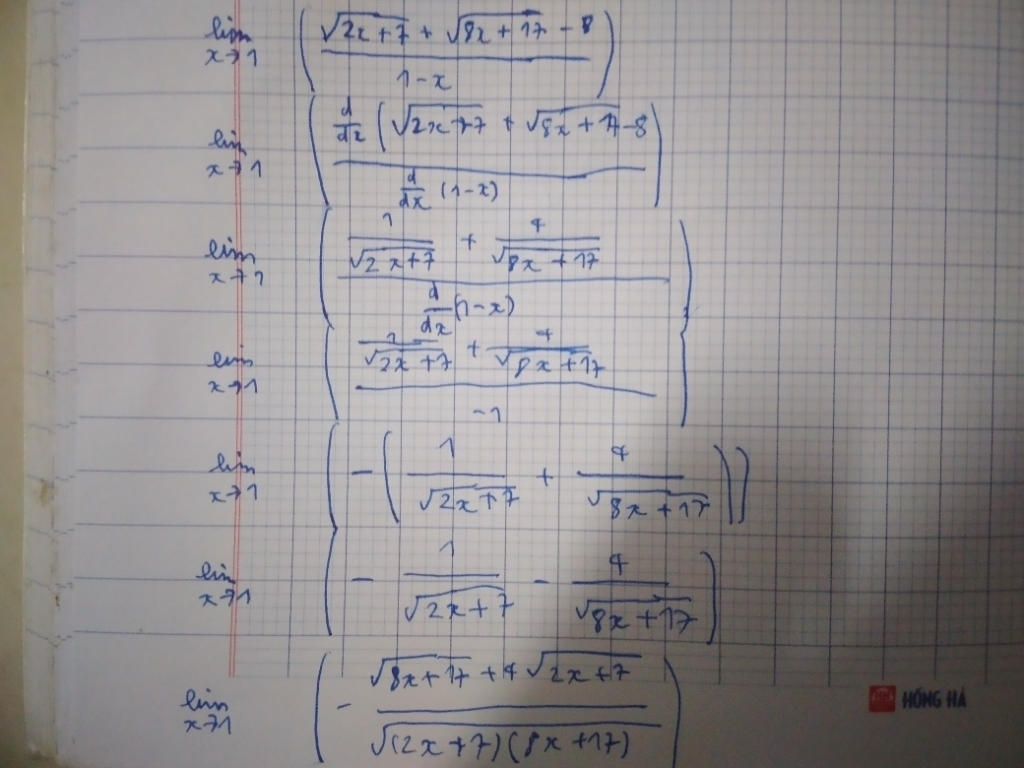 lim x→1 ( (√(2x+7) + √(8x+17) - 8) / (1-x) )
lim x→1 ( (d/dx (√(2x+7) + √(8x+17) - 8)) / (d/dx (1-x)) )
lim x→1 ( (1/√(2x+7) + 4/√(8x+17)) / (d/dx (1-x)) )
lim x→1 ( (1/√(2x+7) + 4/√(8x+17)) / (-1) )
lim x→1 ( - ( 1/√(2x+7) + 4/√(8x+17) ) )
lim x→1 ( - 1/√(2x+7) - 4/√(8x+17) )
lim x→1 ( - (√(8x+17) + 4√(2x+7)) / √((2x+7)(8x+17)) )
HỒNG HÀ